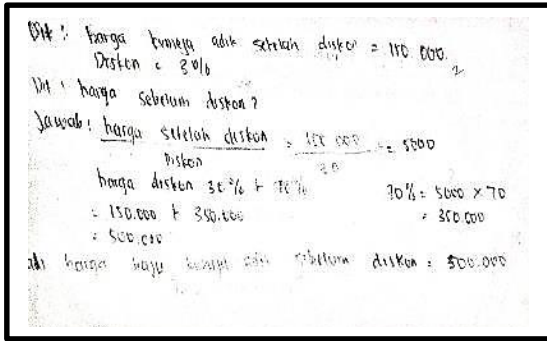 Dik : harga kemeja adik setelah diskon = 150.000.
Diskon = 30%
Dit : harga sebelum diskon?
Jawab : harga setelah diskon = 150 000 = 5000
Diskon 30
harga diskon 30% + 70% 70% = 5000 × 70
= 150.000 + 350.000 = 350.000
= 500.000
harga baju adik sebelum diskon = 500.000